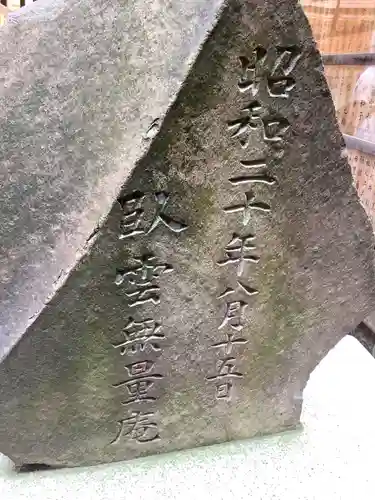 昭和二十年八月十五日
臥雲無量庵